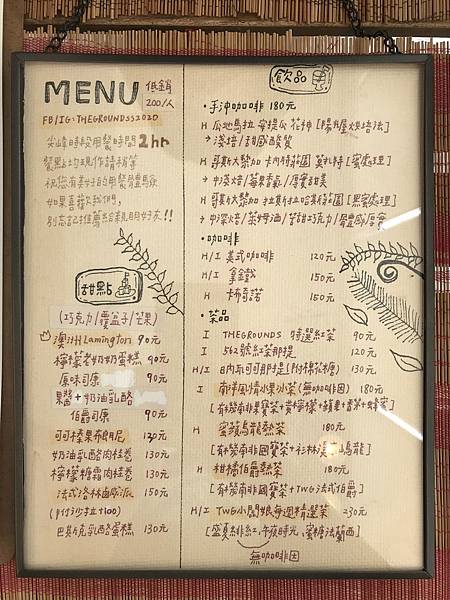 MENU 低銷 200/人
FB/IG:THEGROUNDSS2020
尖峰時段用餐時間2hr
餐點均現作請稍等
祝您有美好的用餐體驗
如果喜歡我們,
別忘記推薦給親朋好友!!
甜點
(巧克力/覆盆子/芒果)
澳洲Lamington 90元
檸檬老奶奶蛋糕 90元
原味司康 90元
果醬+奶油乳酪
伯爵司康 90元
可可榛果布朗尼 130元
奶油乳酪肉桂卷 130元
檸檬糖霜肉桂卷 130元
法式洛林鹹派 150元
(附沙拉+100)
巴斯克乳酪蛋糕 130元
飲品
·手沖咖啡 180元
H 瓜地馬拉 安提瓜 花神 [陽光屋烘焙法]
→淺焙/甜感酸質
H 哥斯大黎加 卡內特莊園 莫札特 [蜜處理]
→中淺焙/莓果香氣/厚實甜美
H 哥斯大黎加 拉莫莊園 [黑蜜處理]
→中深焙/茶姆酒/苦甜巧克力/體感厚實
·咖啡
H/I 美式咖啡 120元
H/I 拿鐵 150元
H 卡布奇諾 150元
·茶品
I THEGROUNDS 特選紅茶 90元
I 362號紅茶那提 120元
H/I B內斥可可那提(附棉花糖) 130元
I 南洋風情水果冰茶(無咖啡因) 180元
[有機南非國寶茶+黃檸檬+蘋果+香茅+蜂蜜]
H 蜜蘋烏龍熱茶 180元
[有機南非國寶茶+杉林溪高山烏龍]
H 柑橘伯爵熱茶 180元
[有機南非國寶茶+TWG法式伯爵]
H/I TWG小閣娘每週精選茶 230元
[盛夏緋紅、午夜時光、蜜糖法蘭西]
無咖啡因